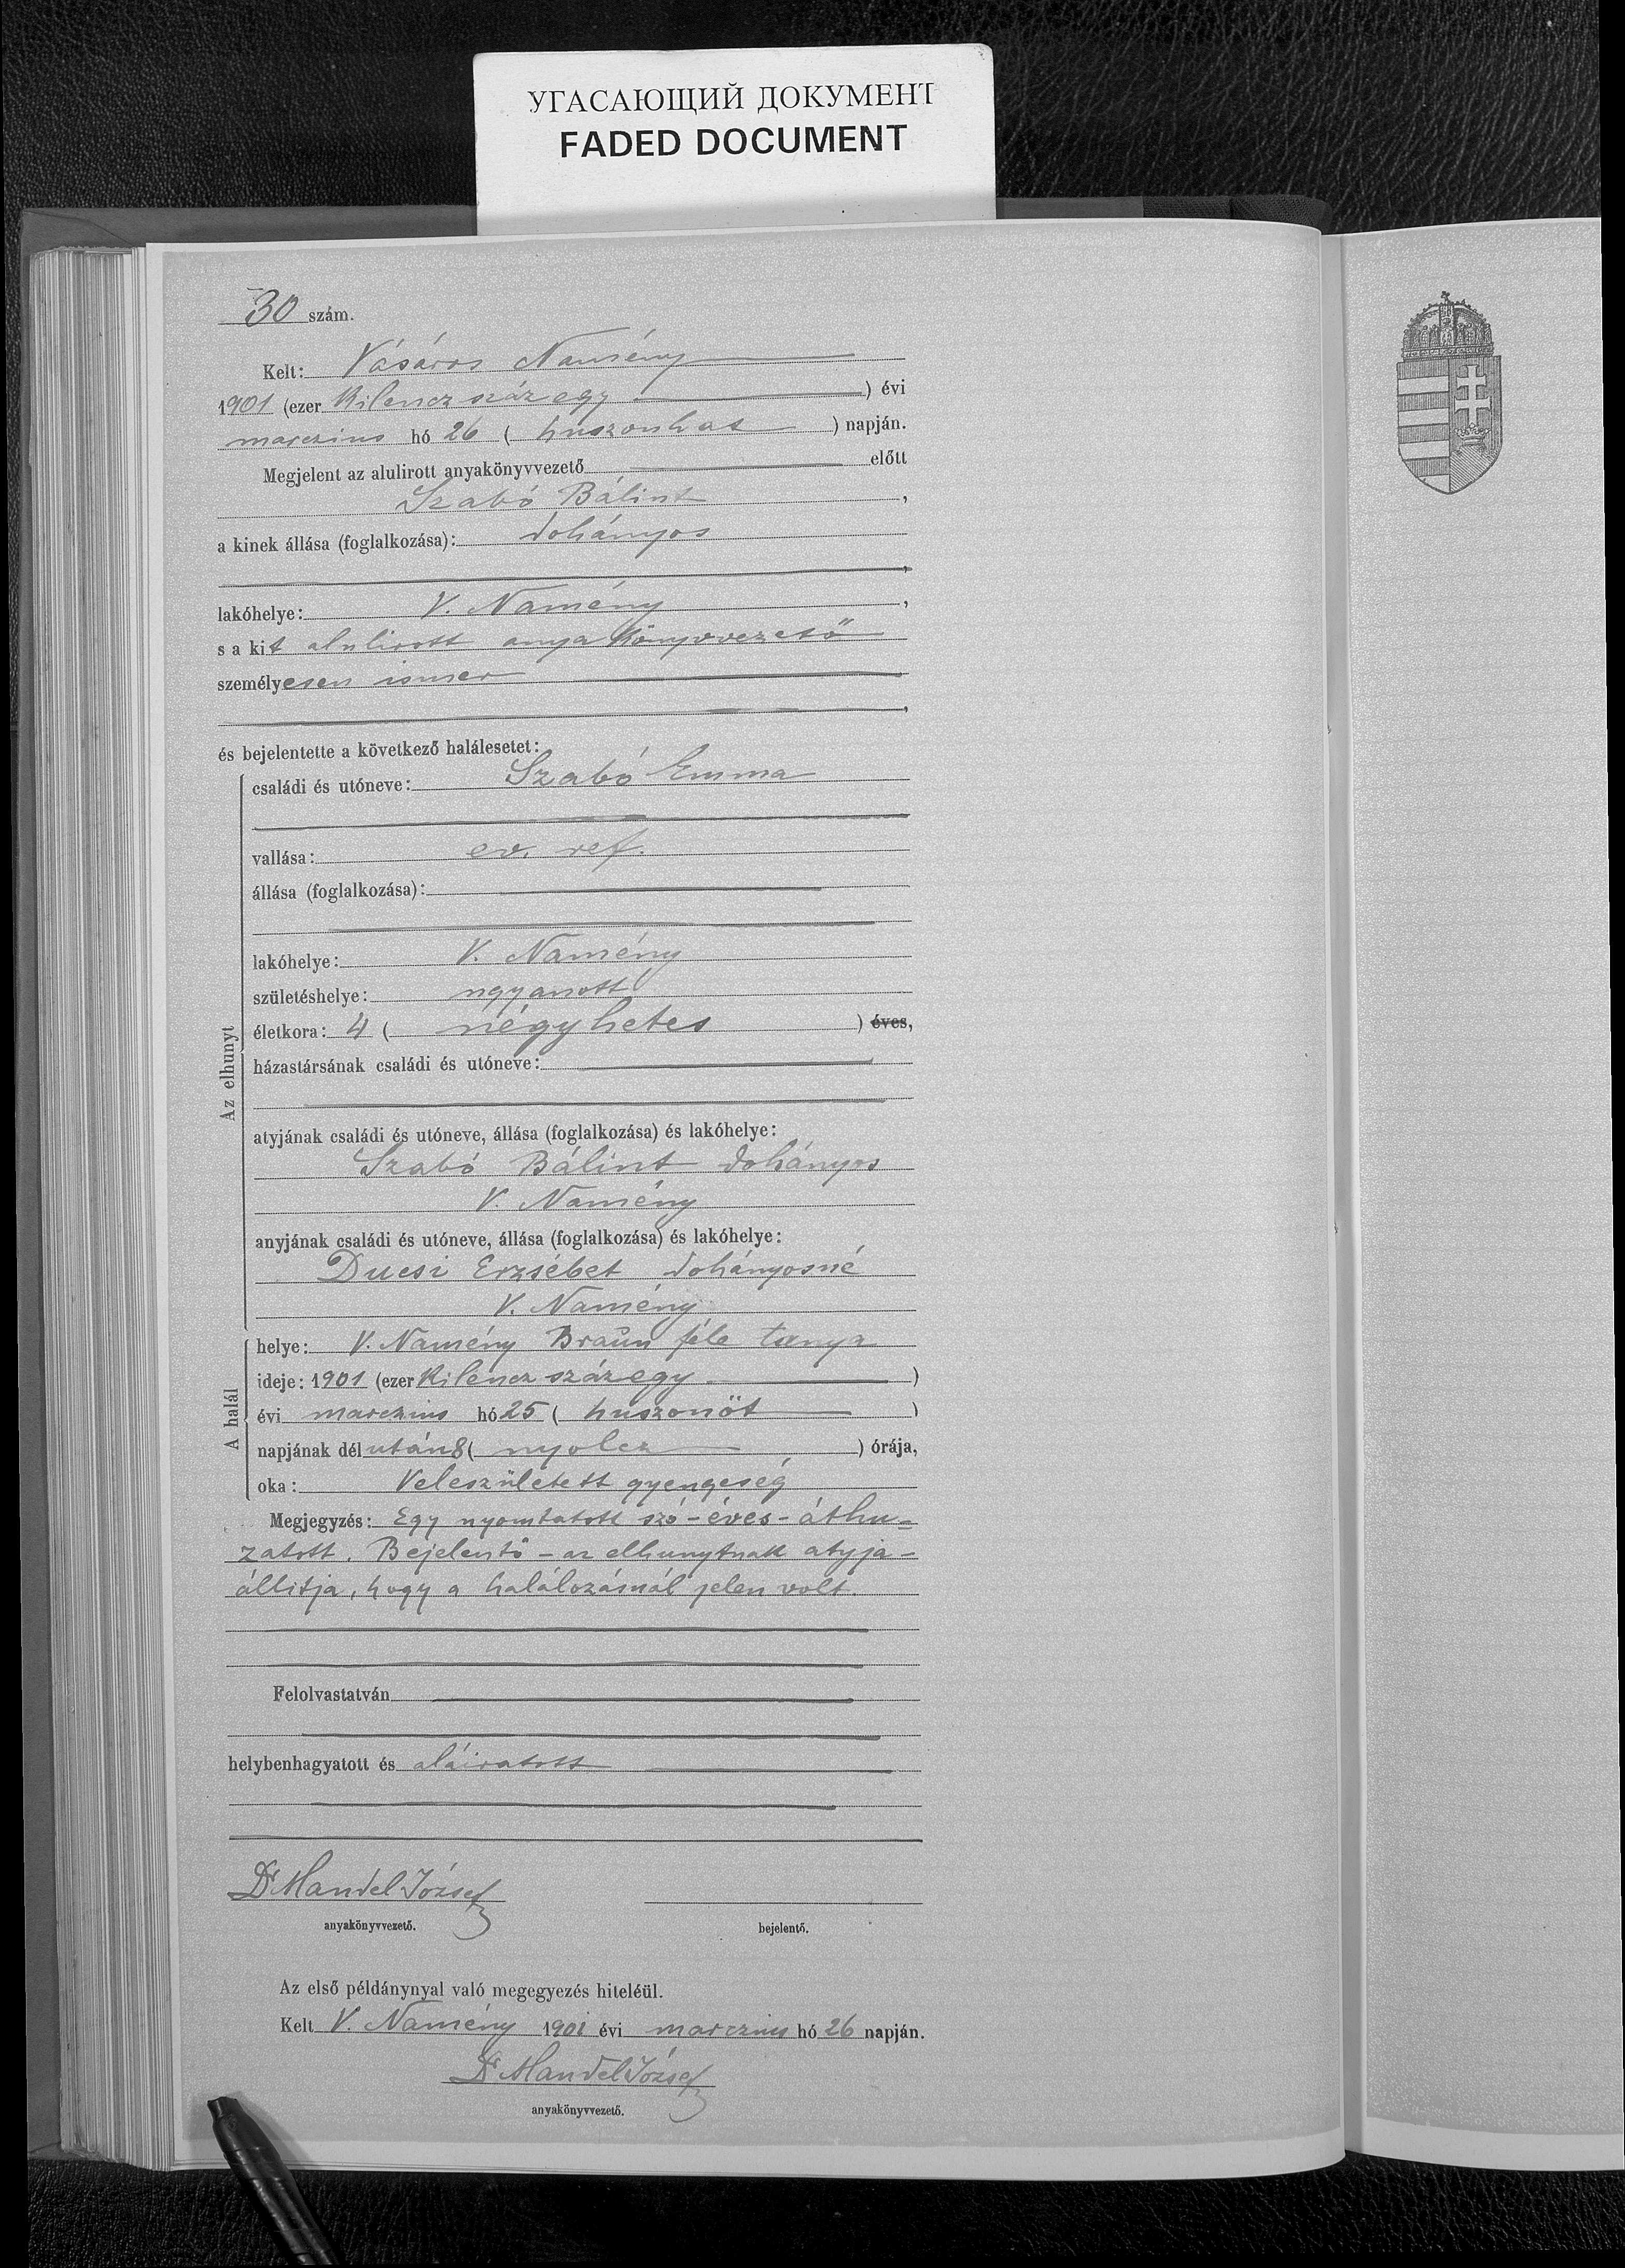 УГАСАЮЩИЙ ДОКУМЕНТ
FADED DOCUMENT
30 szám.
Kelt: Vásáros Namény
1901 (ezer kilencz száz egy ) évi
marczius hó 26 ( huszonhat ) napján.
Megjelent az alulirott anyakönyvvezető előtt
Szabó Bálint,
a kinek állása (foglalkozása): dohányos
,
lakóhelye: V. Namény,
s a kit alulirott anyakönyvvezető
személyesen ismer
,
és bejelentette a következő halálesetet:
Az elhunyt
családi és utóneve: Szabó Emma
vallása: ev. ref.
állása (foglalkozása):
lakóhelye: V. Namény
születéshelye: ugyanott
életkora: 4 ( négy hetes ) éves,
házastársának családi és utóneve:
atyjának családi és utóneve, állása (foglalkozása) és lakóhelye:
Szabó Bálint dohányos
V. Namény
anyjának családi és utóneve, állása (foglalkozása) és lakóhelye:
Ducsi Erzsébet dohányosné
V. Namény
A halál
helye: V. Namény Braun féle tanya
ideje: 1901 (ezer kilencz száz egy )
évi marczius hó 25 ( huszonöt )
napjának dél után 8 ( nyolcz ) órája,
oka: Veleszületett gyengeség
Megjegyzés: Egy nyomtatott szó - éves - áthu-
zatott. Bejelentő - az elhunytnak atyja -
állitja, hogy a halálozásnál jelen volt.
Felolvastatván
helybenhagyatott és aláiratott
Dr Mandel József
anyakönyvvezető. bejelentő.
Az első példánynyal való megegyezés hiteléül.
Kelt V. Namény 1901 évi marczius hó 26 napján.
Dr Mandel József
anyakönyvvezető.